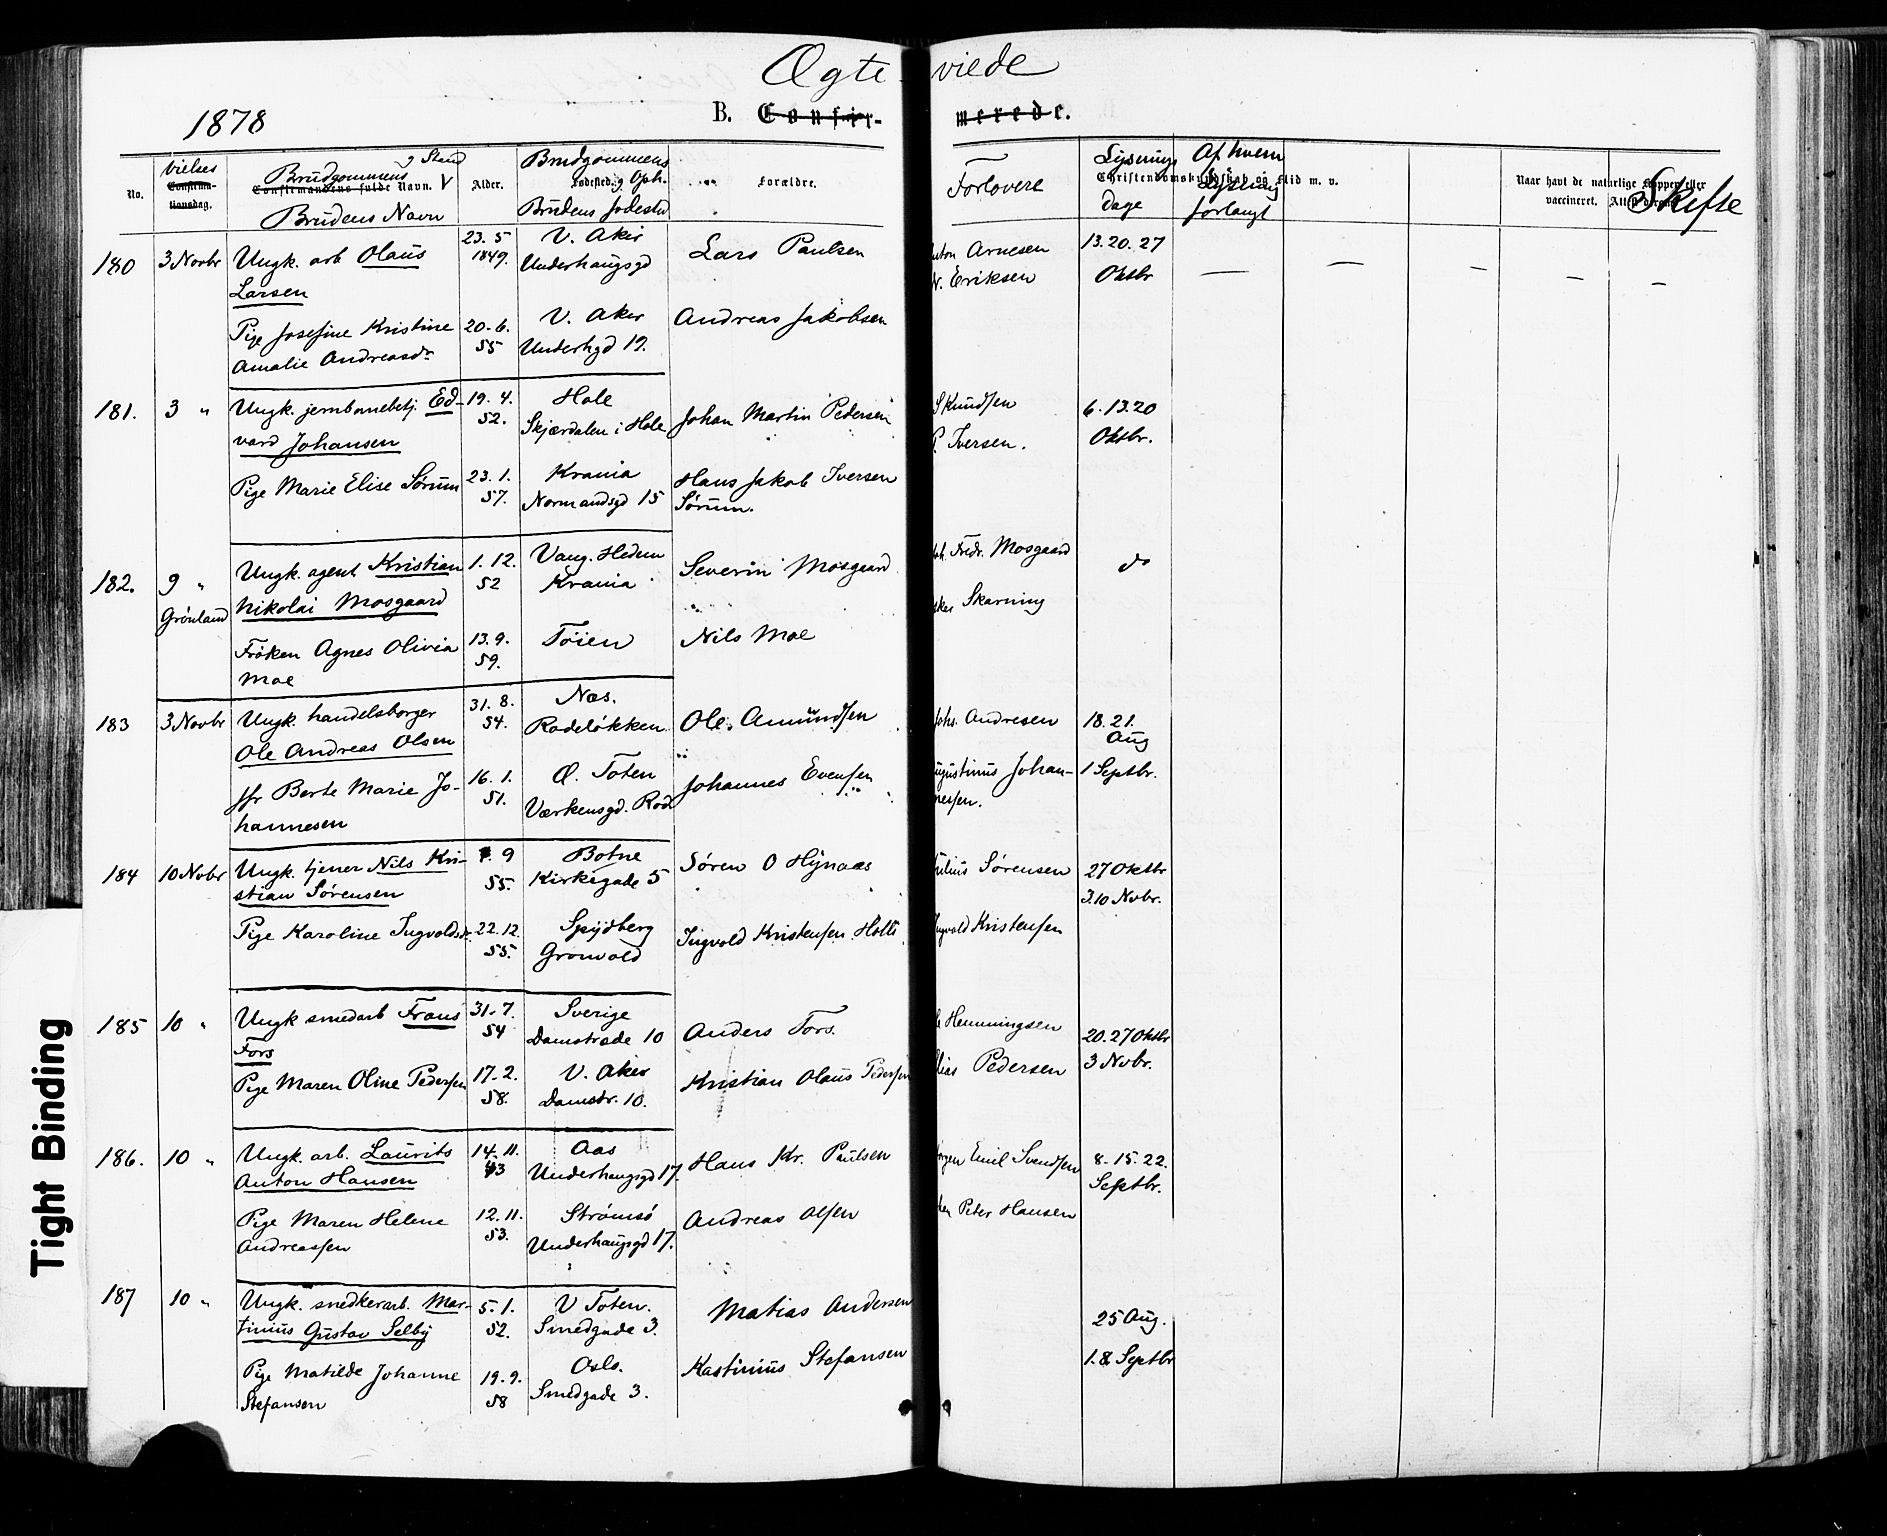 Ægte viede
1878
B. Confir- merede.
No.
vielses
Confirma-
tionsdag.
Brudgommens g Stand
Confirmandens fulde Navn.
Brudens Navn
Alder.
Brudgommens
Fodested. g Oph.
Brudens fodested
Forældre.
Forlovere
Lysnings
dage
Af hvem
Lysning
forlangt
Christendomskundskab og Flid m. v.
Naar havt de naturlige Kopper eller
vaccineret.
Skifte
180 3 Novbr Ungk. arb Olaus
Larsen
23. 5
1849.
V. Aker
Underhaugsgd
Lars Paulsen
Arnesen
Eriksen
13. 20. 27
Oktbr
Pige Josefine Kristine
Amalie Andreasdr
20. 6.
55
V. Aker
Underhgd 19.
Andreas Jakobsen
181. 3 " Ungk. jernbanebetj. Ed-
vard Johansen
19. 4.
52.
Hole
Skjærdalen i Hole
Johan Martin Pedersen
S Knudsen
P. Iversen.
6. 13. 20
Oktbr.
Pige Marie Elise Sørum
23. 1.
57.
Krania
Normandsgd 15
Hans Jakob Iversen
Sørum.
182. 9 "
Grønland
Ungk. agent Kristian
Nikolai Mosgaard
1. 12.
52
Vang. Hedem
Krania
Severin Mosgaard
Fredr. Mosgaard
Skarning
do
Frøken Agnes Olivia
Moe
13. 9.
59.
Tøien
Nils Moe
183 3 Novbr Ungk. handelsborger
Ole Andreas Olsen
31. 8.
54.
Næs.
Rodeløkken
Ole Amundsen
Johs. Andresen
18. 21.
Aug
1 Septbr.
Jfr Berte Marie Jo-
hannesen
16. 1.
51.
Ø. Toten
Værkensgd. Rod
Johannes Evensen
Augustinus Johan-
nesen.
184 10 Novbr Ungk. tjener Nils Kri-
stian Sørensen
9
55.
Botne
Kirkegade 5
Søren O Hynaas
Julius Sørensen
27 Oktbr
3. 10 Novbr.
Pige Karoline Ingvoldsdr.
22. 12.
55.
Spydberg
Grønvold
Ingvold Kristensen Holli
Ingvold Kristensen
185 10 " Ungk smedarb Frans
Fors
31. 7.
54
Sverige
Damstræde 10
Anders Fors.
Hemmingsen
20. 27 Oktbr
3 Novbr.
Pige Maren Oline Pedersen
17. 2.
58.
V. Aker
Damstr. 10.
Kristian Olaus Pedersen
Pedersen
186. 10 " Ungk. arb. Laurits
Anton Hansen
14. 11.
43
Aas
Underhaugsgd 17.
Hans Kr. Paulsen
Emil Svendsen
8. 15. 22.
Septbr.
Pige Maren Helene
Andreassen
12. 11.
53.
Strømsø
Underhaugsgd 17.
Andreas Olsen
Peter Hansen
187 10 " Ungk. snedkerarb. Mar-
tinius Gustav Selby
5. 1.
52.
V Toten.
Smedgade 3.
Matias Andersen
25 Aug.
1. 8 Septbr
Pige Matilde Johanne
Stefansen
19. 9.
58
Oslo.
Smedgade 3.
Kastinius Stefansen
Tight Binding